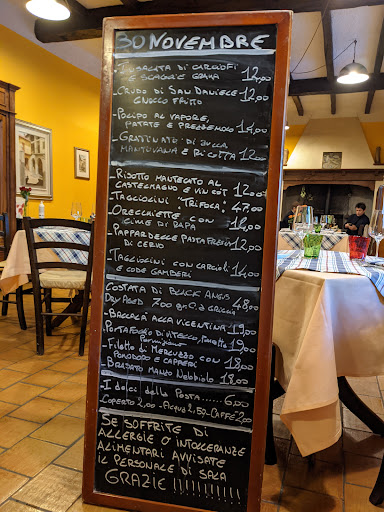 30 NOVEMBRE
- INSALATA DI CARCIOFI
E SCAGLIE GRANA 12,00
- CRUDO DI SAN DANIELE
GNOCCO FRITTO 12,00
- POLIPO AL VAPORE,
PATATE E PREZZEMOLO 14,00
- GRATTINATO DI ZUCCA
MANTOVANA E RICOTTA 12,00
- RISOTTO MANTECATO AL
CASTELMAGNO E VIN CÒT 12,00
- TAGLIOLINI "TRIFOLA" 47,00
- ORECCHIETTE CON
CIME DI RAPA 12,00
- PAPPARDELLE PASTA FRESCA
DI CERVO 12,00
- TAGLIOLINI CON CARCIOFI
E CODE GAMBERI 14,00
COSTATA DI BLACK ANGUS
DRY AGED 700 gr. C.A GRIGLIA 48,00
- BACCALÀ ALLA VICENTINA 19,00
- PORTAFOGLIO DI VITELLO, 
PARMIGIANO 19,00
- FILETTO DI MERLUZZO CON
POMODORO E CAPPERI 18,00
- BRASATO MANZO NEBBIOLO 18,00
- I dolci della Posta ...... 6,00
- COPERTO 2,00 - ACQUA 2,50 - CAFFÈ 2,00
SE SOFFRITE DI
ALLERGIE O INTOLLERANZE
ALIMENTARI AVVISATE
IL PERSONALE DI SALA
GRAZIE !!!!!!!!!!